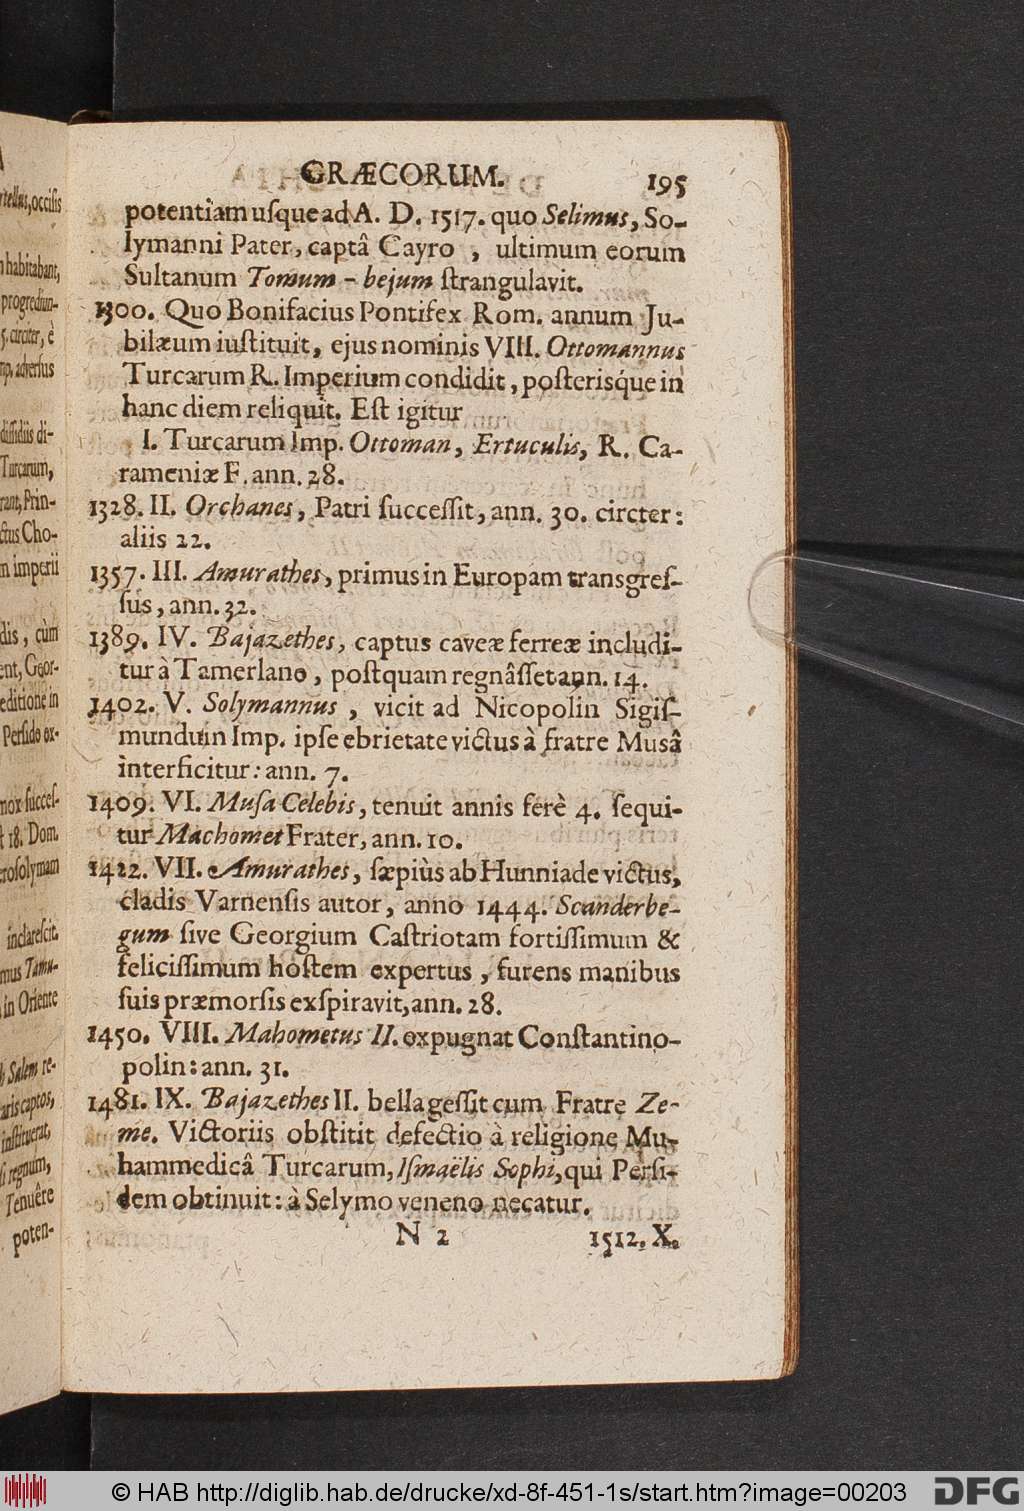 GRÆCORUM. 195
potentiam uſque ad A. D. 1517. quo Selimus, So-
lymanni Pater, captâ Cayro , ultimum eorum
Sultanum Tomum - bejum ſtrangulavit.
1300. Quo Bonifacius Pontifex Rom. annum Ju-
bilæum iuſtituit, ejus nominis VIII. Ottomannus
Turcarum R. Imperium condidit, poſterisq́ue in
hanc diem reliquit. Eſt igitur
I. Turcarum Imp. Ottoman, Ertuculis, R. Ca-
rameniæ F. ann. 28.
1328. II. Orchanes, Patri ſucceſſit, ann. 30. circter:
aliis 22.
1357. III. Amurathes, primus in Europam transgreſ-
ſus, ann. 32.
1389. IV. Bajazethes, captus caveæ ferreæ includi-
tur à Tamerlano, poſtquam regnâſſet ann. 14.
1402. V. Solymannus , vicit ad Nicopolin Sigiſ-
mundum Imp. ipſe ebrietate victus à fratre Musâ
interficitur: ann. 7.
1409. VI. Muſa Celebis, tenuit annis ferè 4. ſequi-
tur Machomet Frater, ann. 10.
1422. VII. Amurathes, ſæpiùs ab Hunniade victus,
cladis Varnenſis autor, anno 1444. Scanderbe-
gum ſive Georgium Caſtriotam fortiſſimum &
feliciſſimum hoſtem expertus, furens manibus
ſuis præmorſis exſpiravit, ann. 28.
1450. VIII. Mahometus II. expugnat Conſtantino-
polin: ann. 31.
1481. IX. Bajazethes II. bella geſſit cum Fratre Ze-
me. Victoriis obſtitit defectio à religione Mu-
hammedicâ Turcarum, Iſmaëlis Sophi, qui Perſi-
dem obtinuit: à Selymo veneno necatur.
N 2 1512. X.
rtellus, occiſis
habitabant,
progrediun-
5. circiter, è
adverſus
diſſidiis di-
Turcarum,
rant, Prin-
ctus Cho-
m imperii
dis, cùm
ent, Geor-
editione in
Perſide ex-
mox ſucceſ-
18. Dom.
eroſolymam
inclareſcit.
mus Tamu-
in Oriente
Salem re-
aris captos,
inſtituerat,
regnum,
Tenuêre
poten-
© HAB http://diglib.hab.de/drucke/xd-8f-451-1s/start.htm?image=00203
DFG